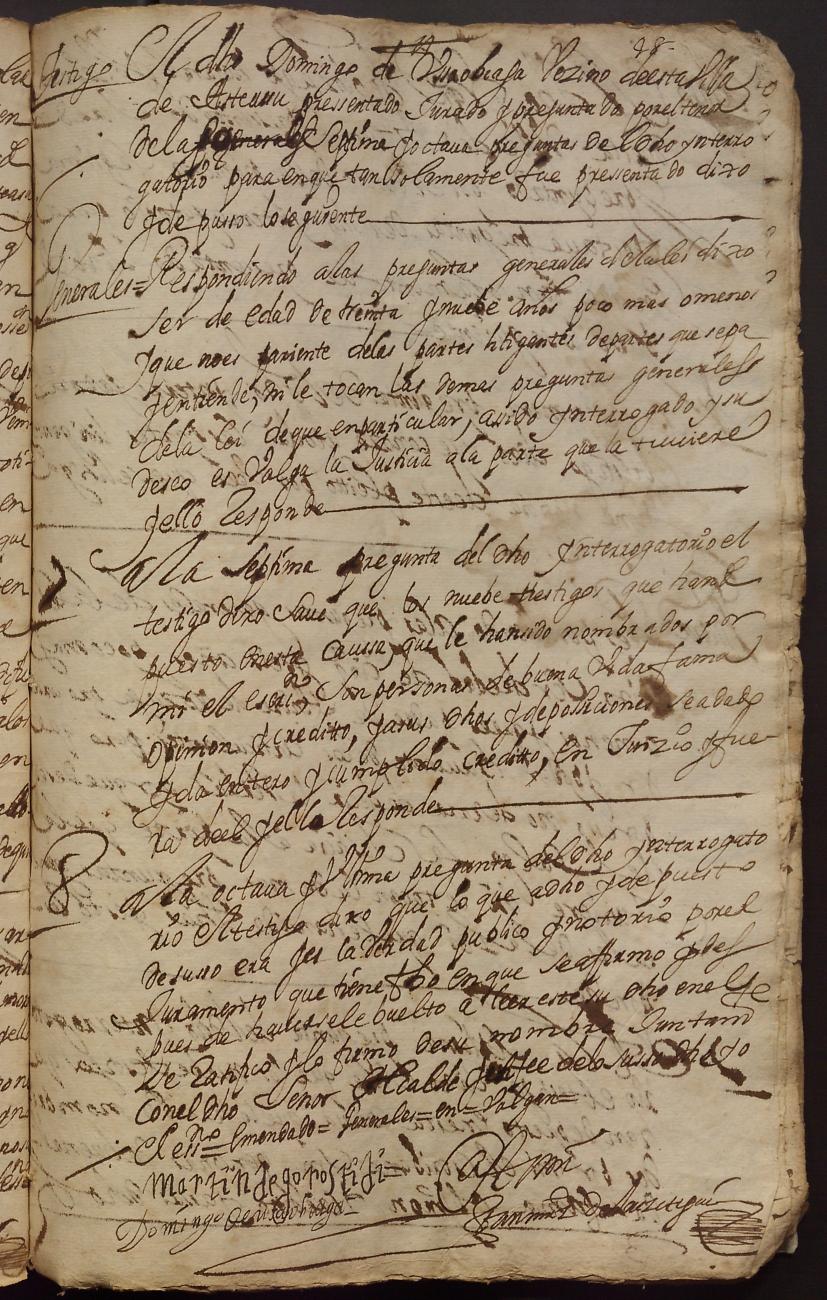 48
Testigo El dho Domingo de Vsabiaga Vezino deesta Villa
de Asteasu pressentado Jurado y preguntado por el tenor
de las generales Septima y octaua preguntas del dho ynterro
gatorio para en que tan solamente fue pressentado dixo
y depusso lo seguiente
Generales = Respondiendo a las preguntas generales de la lei dixo
ser de edad de treinta y nuebe años poco mas o menos
y que no es pariente de las partes litigantes de partes que sepa
y entiende, ni le tocan las demas preguntas generales
de la lei de que en particular, a sido ynterrogado y su
deseo es Valga la Justicia a la parte que la tuuiere
y ello Responde
7 a la septima pregunta del dho ynterrogatorio el
testigo dixo saue que los nuebe testigos que han
puesto en esta caussa, que le han sido nombrados por
mi el essno, son personas de buena Vida fama
opinion y creditto, y a sus dhos y deposiciones se a dado
y da entero y cumplido creditto, en Juizio y fue
ra de el y ello Responde
8 a la octaua y Vltima pregunta del dho ynterrogato
rio el testigo dixo que lo que a dho y depuesto
de suso era y es la Verdad publico y notorio por el
Juramento que tiene fho en que se affirmo y des
pues de hauersele buelto a leer este su dho en el se
Re Ratifico y lo firmo de su nombre Juntamte
con el dho Señor Alcalde y en fee de lo susso dho yo
el essno = Emendado = generales = en = Valgan =
Martin de gorostidi =
Domingo de Vsabiaga